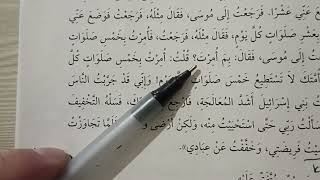 عَنِّي عَشْرًا. فَرَجَعْتُ إِلَى مُوسَى، فَقَالَ مِثْلَهُ، فَرَجَعْتُ، فَوَضَعَ عَنِّي
بِعَشْرِ صَلَوَاتٍ كُلَّ يَوْمٍ، فَقَالَ مِثْلَهُ، فَرَجَعْتُ، فَأُمِرْتُ بِخَمْسِ صَلَوَاتٍ
مُوسَى، فَقَالَ: بِمَ أُمِرْتَ؟ قُلْتُ: أُمِرْتُ بِخَمْسِ صَلَوَاتٍ كُلَّ
أُمَّتَكَ لَا تَسْتَطِيعُ خَمْسَ صَلَوَاتٍ وَإِنِّي قَدْ جَرَّبْتُ النَّاسَ
بَنِي إِسْرَائِيلَ أَشَدَّ الْمُعَالَجَةِ، فَارْجِعْ فَسَلْهُ التَّخْفِيفَ
سَأَلْتُ رَبِّي حَتَّى اسْتَحْيَيْتُ مِنْهُ، وَلَكِنْ أَرْضَى فَلَمَّا تَجَاوَزْتُ
فَرِيضَتِي، وَخَفَّفْتُ عَنْ عِبَادِي».